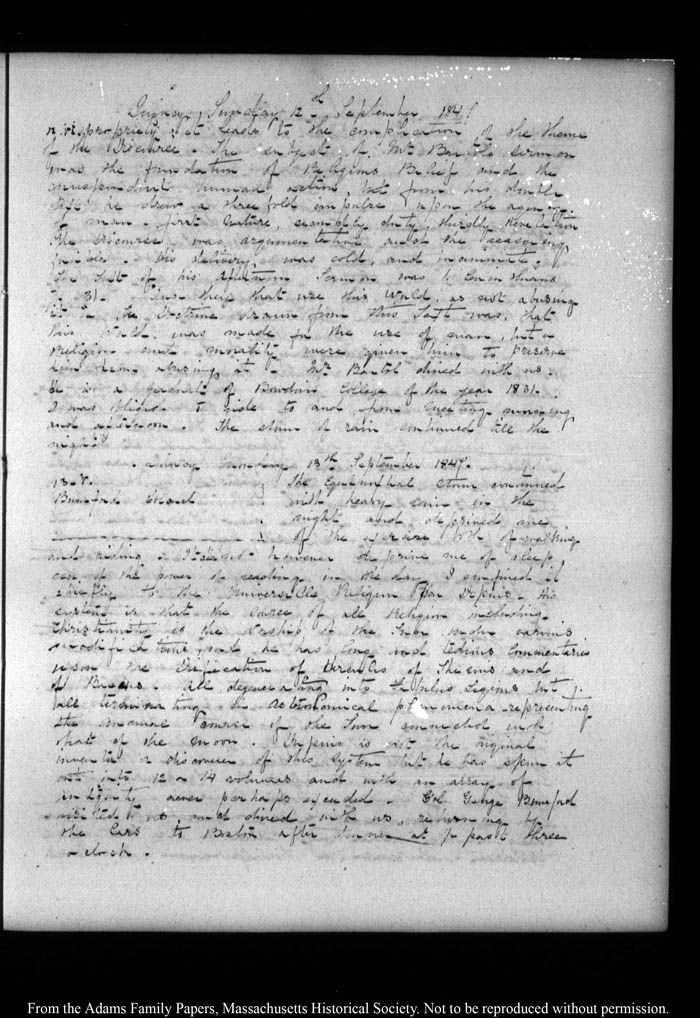 Quincy, Sunday 12th September 184
propriety it leads to the complication of the theme
of the Discourse. The subject of Mr Bartol's sermon
was the foundation of Religious Belief and the
human action, but from his
he drew a three fold impulse upon the agency
of man. first Nature, secondly duty, thirdly Revelation
the discourse was argumentative and the reasoning
His delivery was cold, and inanimate.
The text of his afternoon Sermon was 1. Corinthians
7. 31. And they that use this World, as not abusing
it. The Doctrine drawn from this Text was, that
this World was made for the use of man, but
Religion and morality were given him to preserve
him from abusing it. Mr Bartol dined with us.
He is a graduate of Bowdoin College of the year 1831.
I was obliged to ride to and from meeting morning
and afternoon. The storm of rain continued till the
night
Quincy Monday 13th September 184
13. V. The Equinoctial storm continued
Bumford Board with heavy rain in the
night and deprived me
of the exercise both of walking
and riding. It did not however deprive me of sleep
of the power of reading in the day I confined it
chiefly to the Universelle Religion par Dupuis. His
system is that the source of all Religion including
Christianity is the Worship of the Sun under various
modifications, and he has long and tedious Commentaries
upon the Deification of Hercules of Theseus and
of Bacchus. all degenerating into fabulous Legions but
all terminating in astronomical phenomena representing
the annual course of the Sun connected with
that of the moon. Dupuis is not the original
inventor or discoverer of this system but he has spun it
out into 12 or 14 volumes and with an array of
never perhaps exceeded. Col. George Bumford
visited us, and dined with us, returning by
the Cars to Boston after dinner at ½ past three
o'clock.
From the Adams Family Papers, Massachusetts Historical Society. Not to be reproduced without permission.